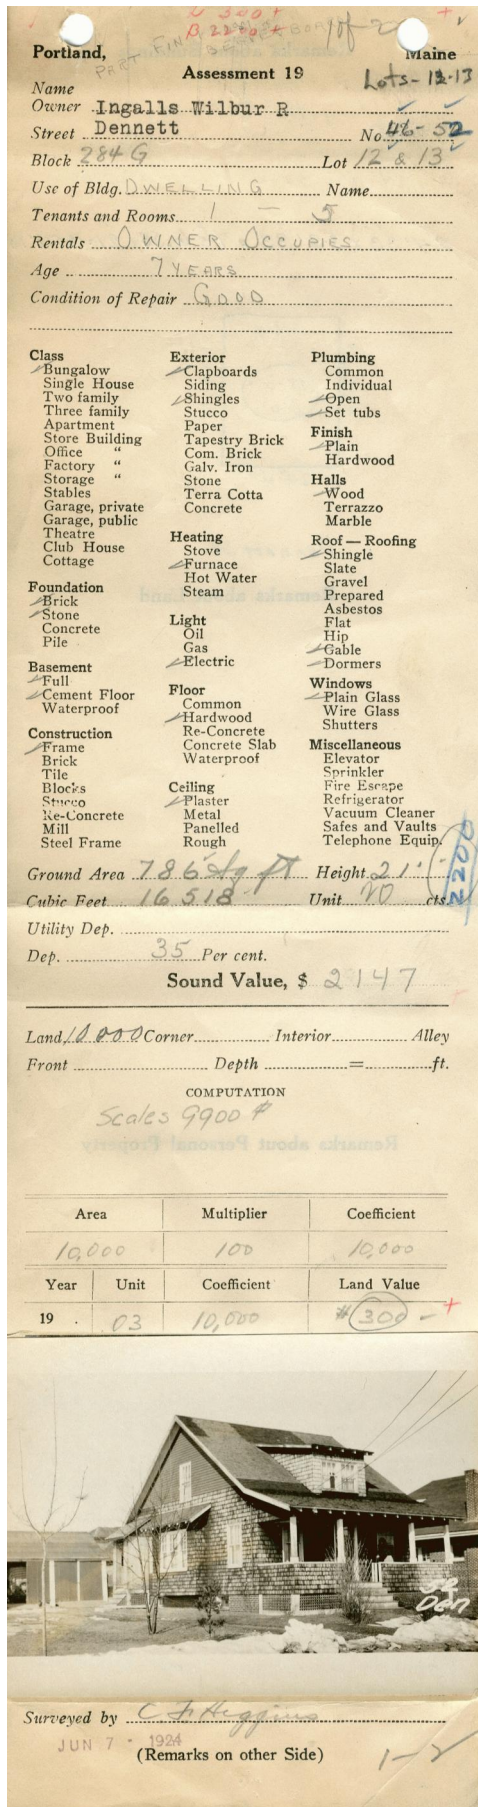 L 300 +
B 2200 +
1 of 2
Portland, Maine
Assessment 19
Lots-12-13
Name
Owner Ingalls Wilbur R
Street Dennett No 46-52
Block 284 G Lot 12 & 13
Use of Bldg. DWELLING Name
Tenants and Rooms 1 — 5
Rentals OWNER OCCUPIES
Age 7 YEARS
Condition of Repair GOOD
Class
Bungalow
Single House
Two family
Three family
Apartment
Store Building
Office "
Factory "
Storage "
Stables
Garage, private
Garage, public
Theatre
Club House
Cottage
Foundation
Brick
Stone
Concrete
Pile
Basement
Full
Cement Floor
Waterproof
Construction
Frame
Brick
Tile
Blocks
Stucco
Re-Concrete
Mill
Steel Frame
Exterior
Clapboards
Siding
Shingles
Stucco
Paper
Tapestry Brick
Com. Brick
Galv. Iron
Stone
Terra Cotta
Concrete
Heating
Stove
Furnace
Hot Water
Steam
Light
Oil
Gas
Electric
Floor
Common
Hardwood
Re-Concrete
Concrete Slab
Waterproof
Ceiling
Plaster
Metal
Panelled
Rough
Plumbing
Common
Individual
Open
Set tubs
Finish
Plain
Hardwood
Halls
Wood
Terrazzo
Marble
Roof — Roofing
Shingle
Slate
Gravel
Prepared
Asbestos
Flat
Hip
Gable
Dormers
Windows
Plain Glass
Wire Glass
Shutters
Miscellaneous
Elevator
Sprinkler
Fire Escape
Refrigerator
Vacuum Cleaner
Safes and Vaults
Telephone Equip.
Ground Area 786 sq ft Height 21'
Cubic Feet 16518 Unit 20 cts.
2200
Utility Dep.
Dep. 35 Per cent.
Sound Value, $ 2147
Land 10000 Corner Interior Alley
Front Depth = ft.
COMPUTATION
Scales 9900 #
Area Multiplier Coefficient
10,000 100 10,000
Year Unit Coefficient Land Value
19 . 03 10,000 # 300 - +
50
Den
Surveyed by C F Higgins
JUN 7 - 1924
(Remarks on other Side)
1-2